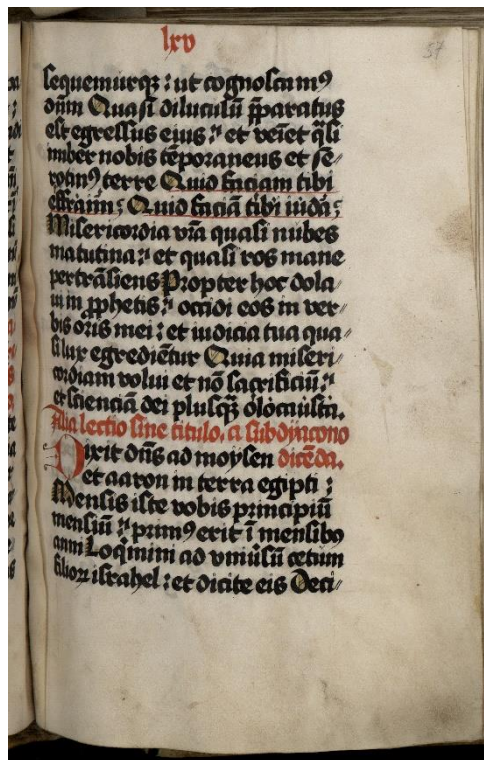 lxv
57
sequemurqꝫ : ut cognoscamꝰ
dn̄m Quasi diluculū p̄paratus
est egressus eius : et veīet q̄si
imber nobis tēporaneus et se
rotinꝰ terre Quid faciam tibi
effraim : Quid faciā tibi iuda :
Misericordia vr̄a quasi nubes
matutina : et quasi ros mane
pertrāsiens Propter hoc dola
ui in ꝓphetis : occidi eos in ver
bis oris mei : et iudicia tua qua
si lux egrediētur Quia miseri
cordiam volui et nō sacrificiū :
et scienciā dei plusqꝫ olocausta.
Alia lectio sine titulo. a subdyacono
Dixit dn̄s ad moysen dicēda.
et aaron in terra egipti :
Mensis iste vobis principiū
mensiū : primꝰ erit ī mensibꝰ
anni Loq̄mini ad vniūsū cetum
filioꝝ israhel : et dicite eis Deci